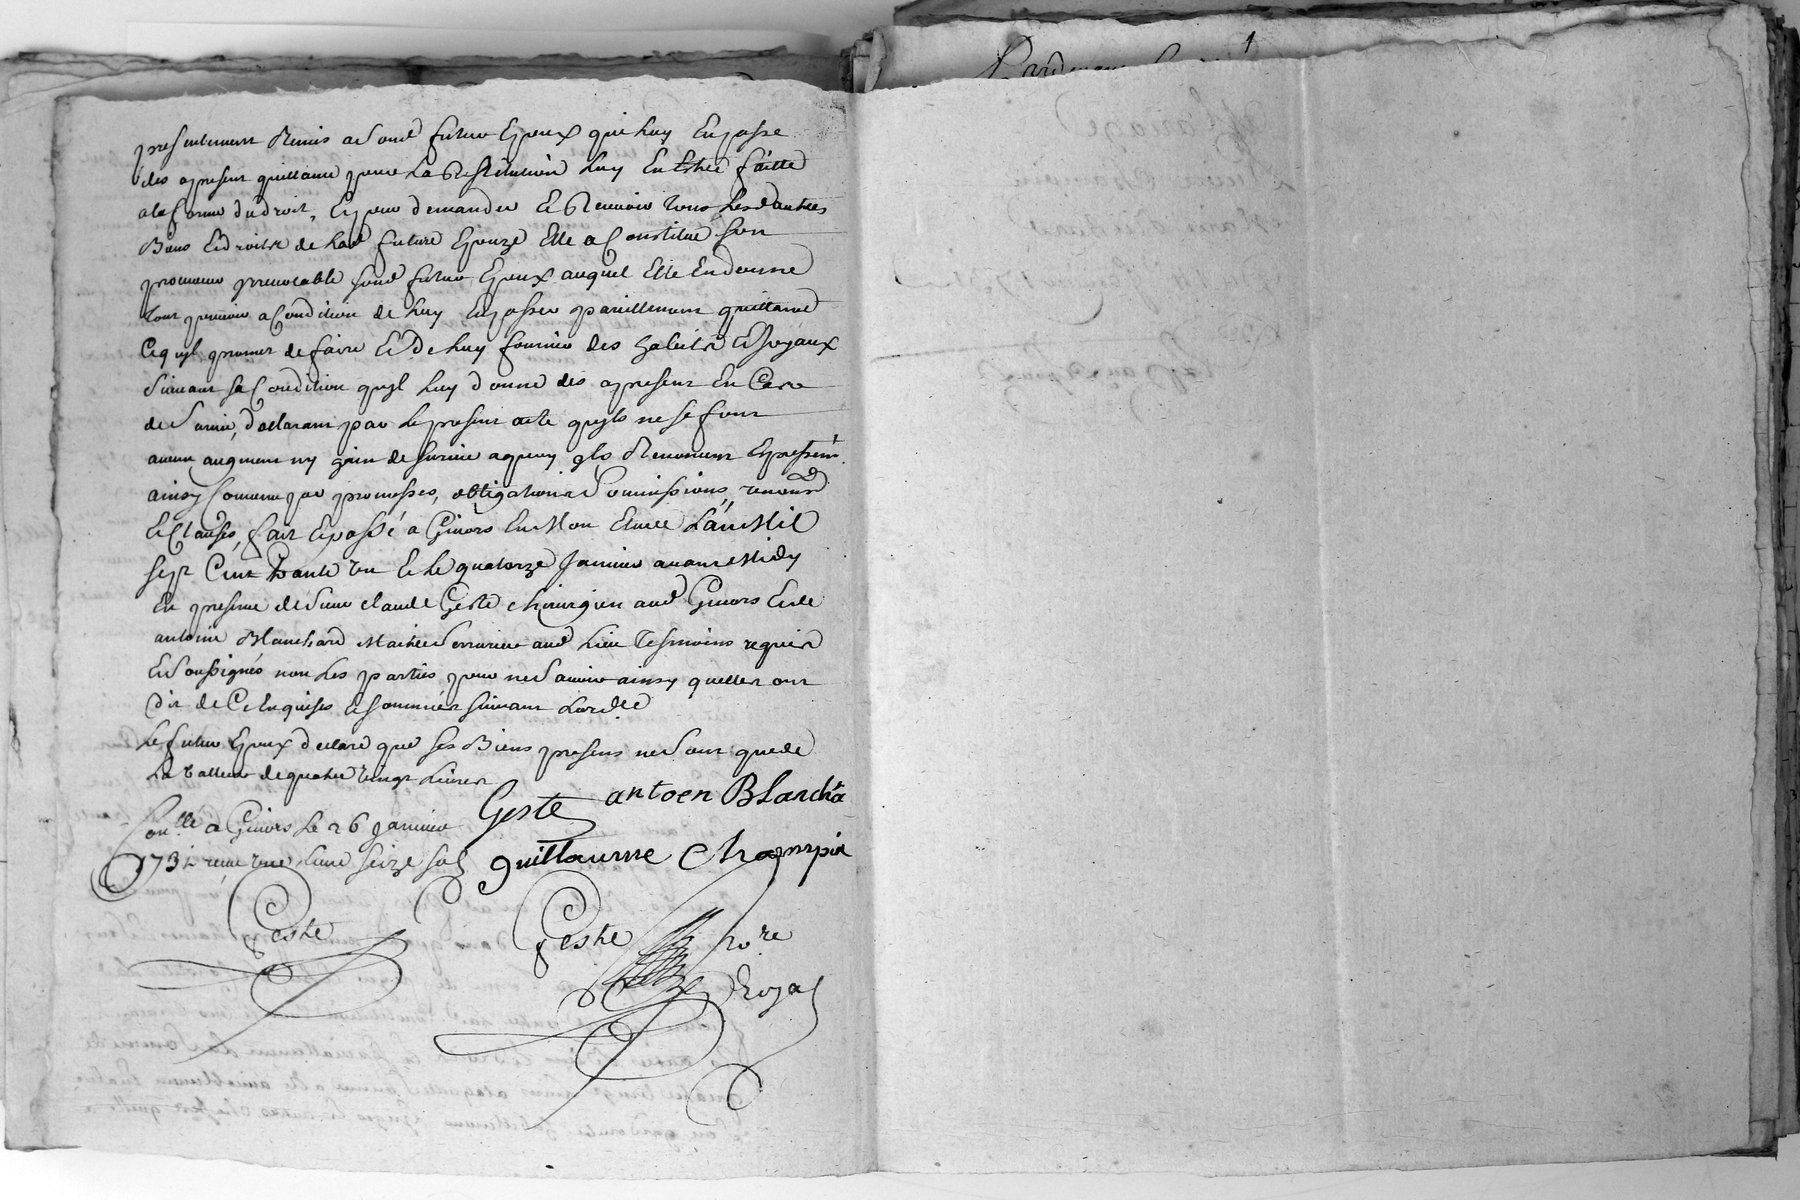 presentement Remis a Sond futur Epoux qui luy En passe
des apresent quittance pour La Restitution luy En Estre faitte
a la forme du droit, Et pour demander Et Recevoir tous Les dautres
Biens Et droits de Lad future Epouze Elle a Constitué son
procureur irrevocable sond futur Epoux auquel Elle En donne
tout pouvoir a Condition de luy En passer pareillement quittance
Ce quil promet de faire Et De luy fournir des habits Et Joyaux
Suivant sa Condition quil luy donne des apresent En Cas
de Survie, declarant par Le present acte quils ne se font
aucun augment ny gain de survie a quoy ils Renoncent Expressem
ainsy Convenu par promesses, obligations Soumissions, renond
Et Clauses, fait Et passé a Givors En Mon Etude L'an Mil
sept Cent trante un Et Le quatorze Janvier avant Midy
En presence de Sieur claude Geste chirurgien aud Givors Et de
antoine Blanchard Maitre Serrurier aud Lieu Tesmoins requis
Et Soussignés non Les parties pour ne Savoir ainsy quelles ont
Dit de Ce Enquises Et Sommées suivant Lordce
Le futur Epoux declare que ses Biens presens ne Sont que de
La Valleur de quatre vingt Livres
Geste antoen BLancha
Conlle a Givors Le 26 Janvier
1731 receu une Livre seize sols
guillaume Champin
Geste
Geste no.re
Royal